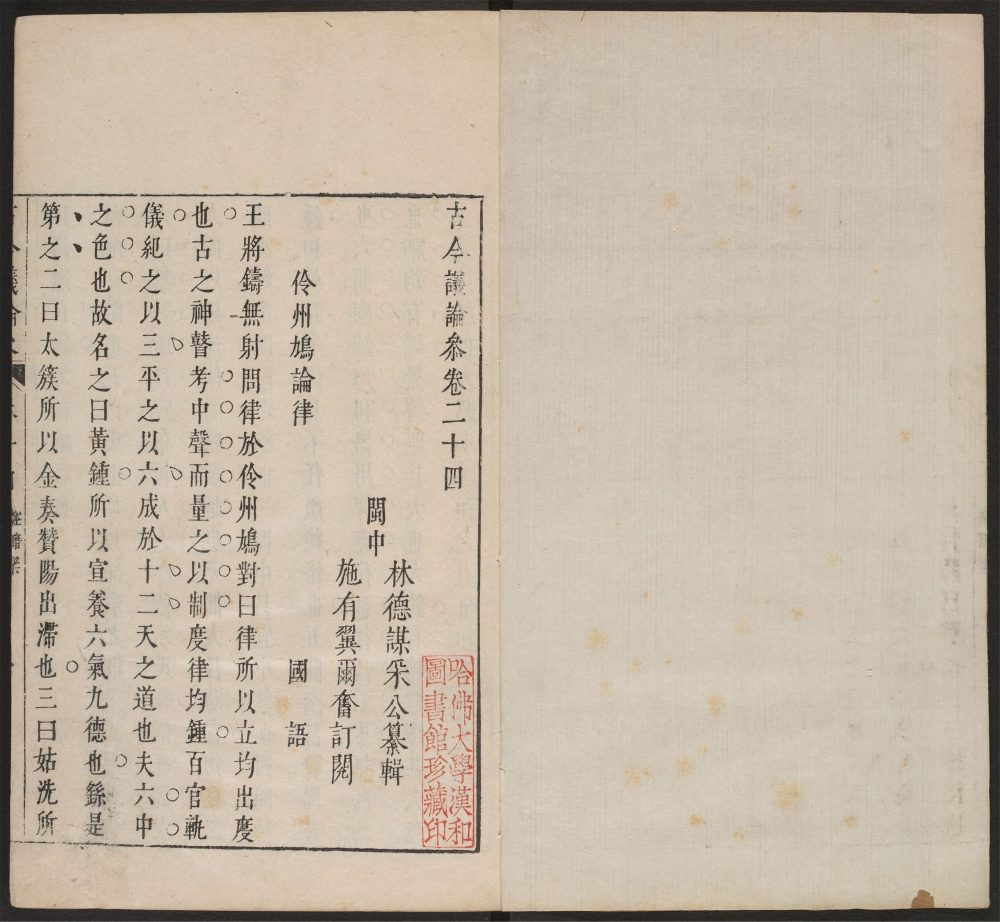 古今議論叅卷二十四
閩中
林德謀采公纂輯
施有翼爾奮訂閱
哈佛大學漢和
圖書館珍藏印
伶州鳩論律
國語
王將鑄無射問律於伶州鳩對曰律所以立均出度
也古之神瞽考中聲而量之以制度律均鍾百官軌
儀紀之以三平之以六成於十二天之道也夫六中
之色也故名之曰黃鍾所以宣養六氣九德也繇是
第之二曰太簇所以金奏贊陽出滯也三曰姑洗所